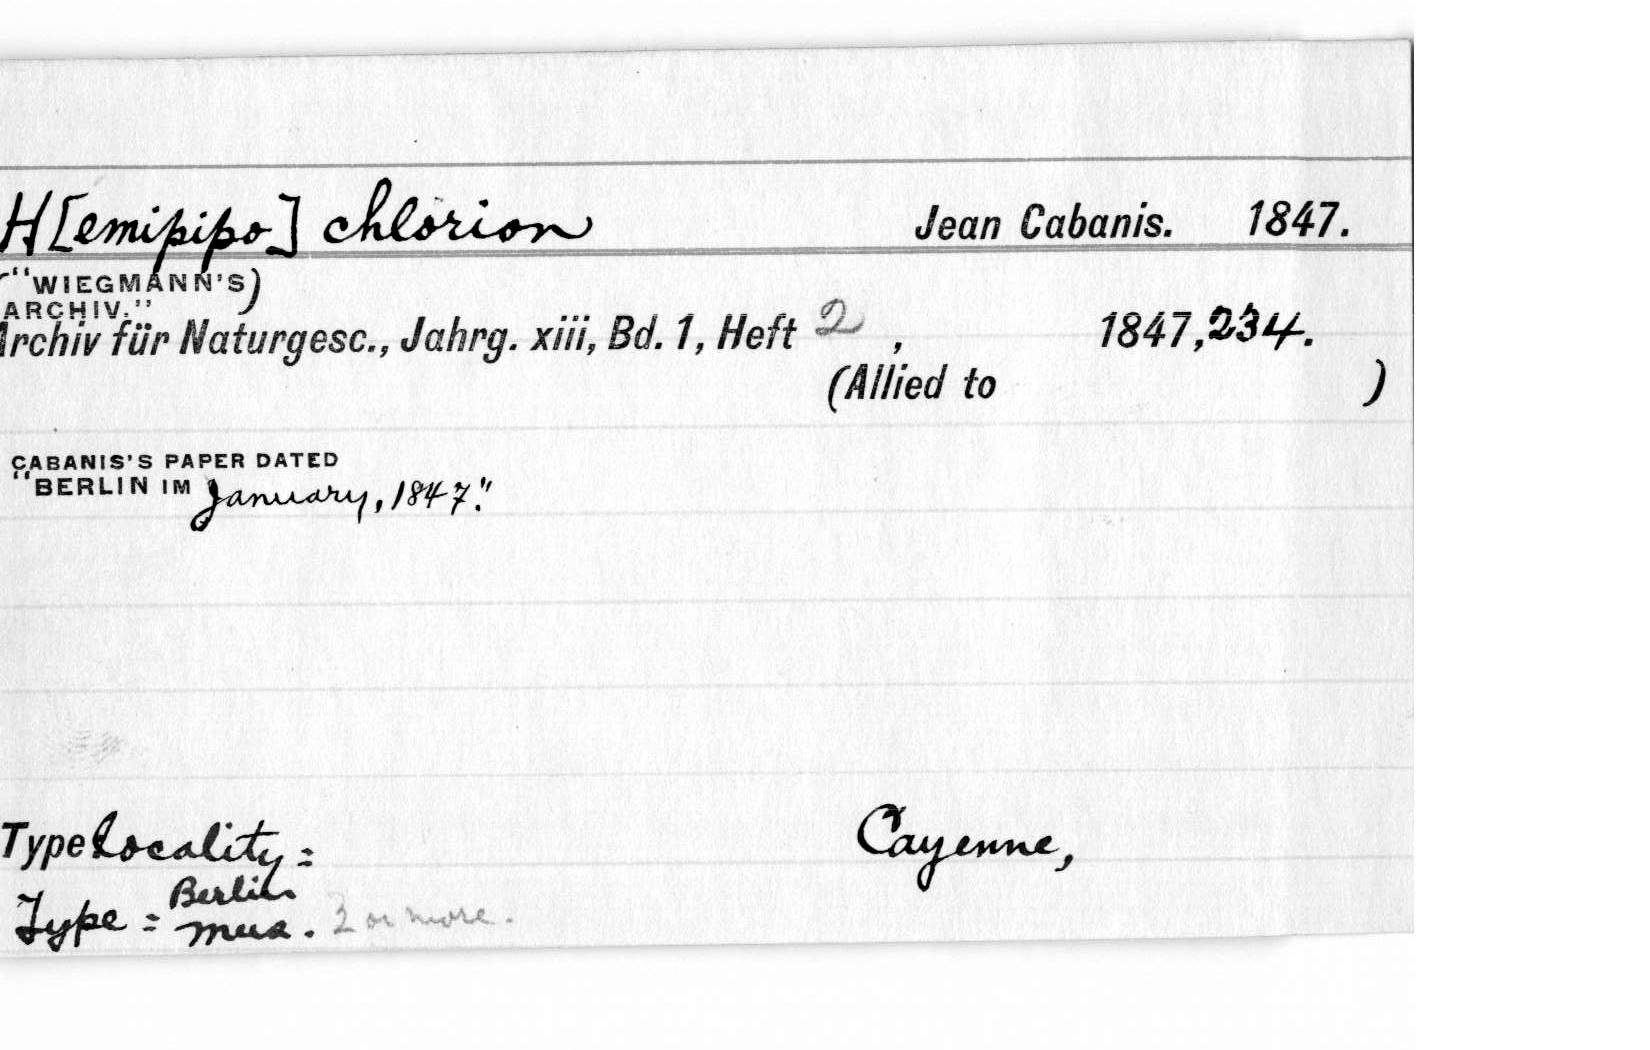 H[emipipo] chlorion Jean Cabanis. 1847.
("WIEGMANN'S)
ARCHIV."
Archiv für Naturgesc., Jahrg. xiii, Bd. 1, Heft 2, 1847, 234.
(Allied to )
CABANIS'S PAPER DATED
"BERLIN IM January, 1847."
Type locality = Cayenne,
Type = Berlin
Mus. 2 or more.